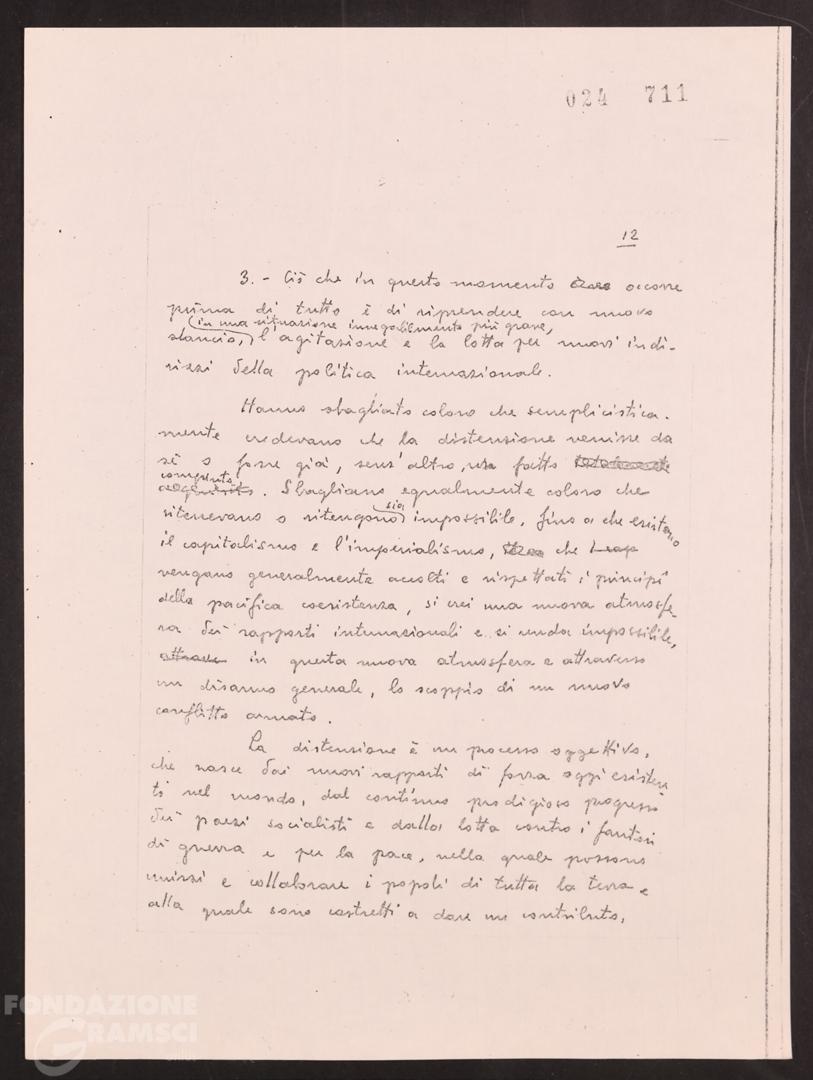 024 711
12
3. - Ciò che in questo momento occorre
prima di tutto è di riprendere con nuovo
(in una situazione innegabilmente più grave,
slancio,) l'agitazione e la lotta per nuovi indi-
rizzi della politica internazionale.
Hanno sbagliato coloro che semplicistica-
mente credevano che la distensione venisse da
sé o fosse già, senz'altro, un fatto
compiuto
. Sbagliano egualmente coloro che
sia
ritenevano o ritengono impossibile, fino a che esistano
il capitalismo e l'imperialismo, che
vengano generalmente accolti e rispettati i principî
della pacifica coesistenza, si crei una nuova atmosfe
ra dei rapporti internazionali e si renda impossibile,
attrave in questa nuova atmosfera e attraverso
un disarmo generale, lo scoppio di un nuovo
conflitto armato.
La distensione è un processo oggettivo,
che nasce dai nuovi rapporti di forza oggi esisten
ti nel mondo, dal continuo prodigioso progresso
dei paesi socialisti e dalla lotta contro i fautori
di guerra e per la pace, nella quale possono
unirsi e collaborare i popoli di tutta la terra e
alla quale sono costretti a dare un contributo,
FONDAZIONE
GRAMSCI